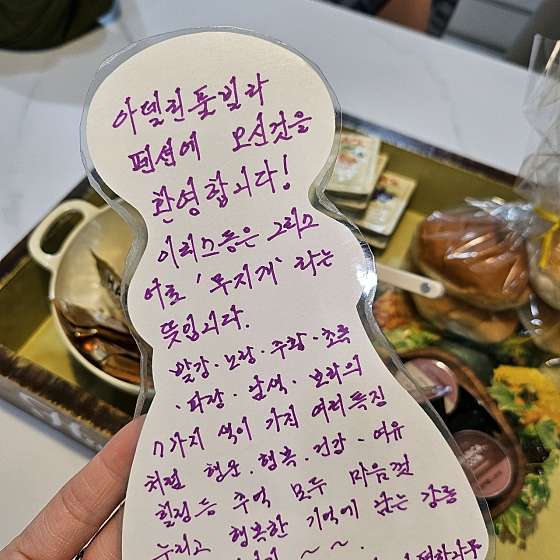 아델린풀빌라
펜션에 오신것을
환영합니다!
이리스동은 그리스
어로 '무지개' 라는
뜻입니다.
빨강·노랑·주황·초록
·파랑·남색·보라의
7가지 색이 가진 여러특징
처럼 행운·행복·건강·여유
힐링등 추억 모두 마음껏
누리고 행복한 기억에 남는 강릉
~~.